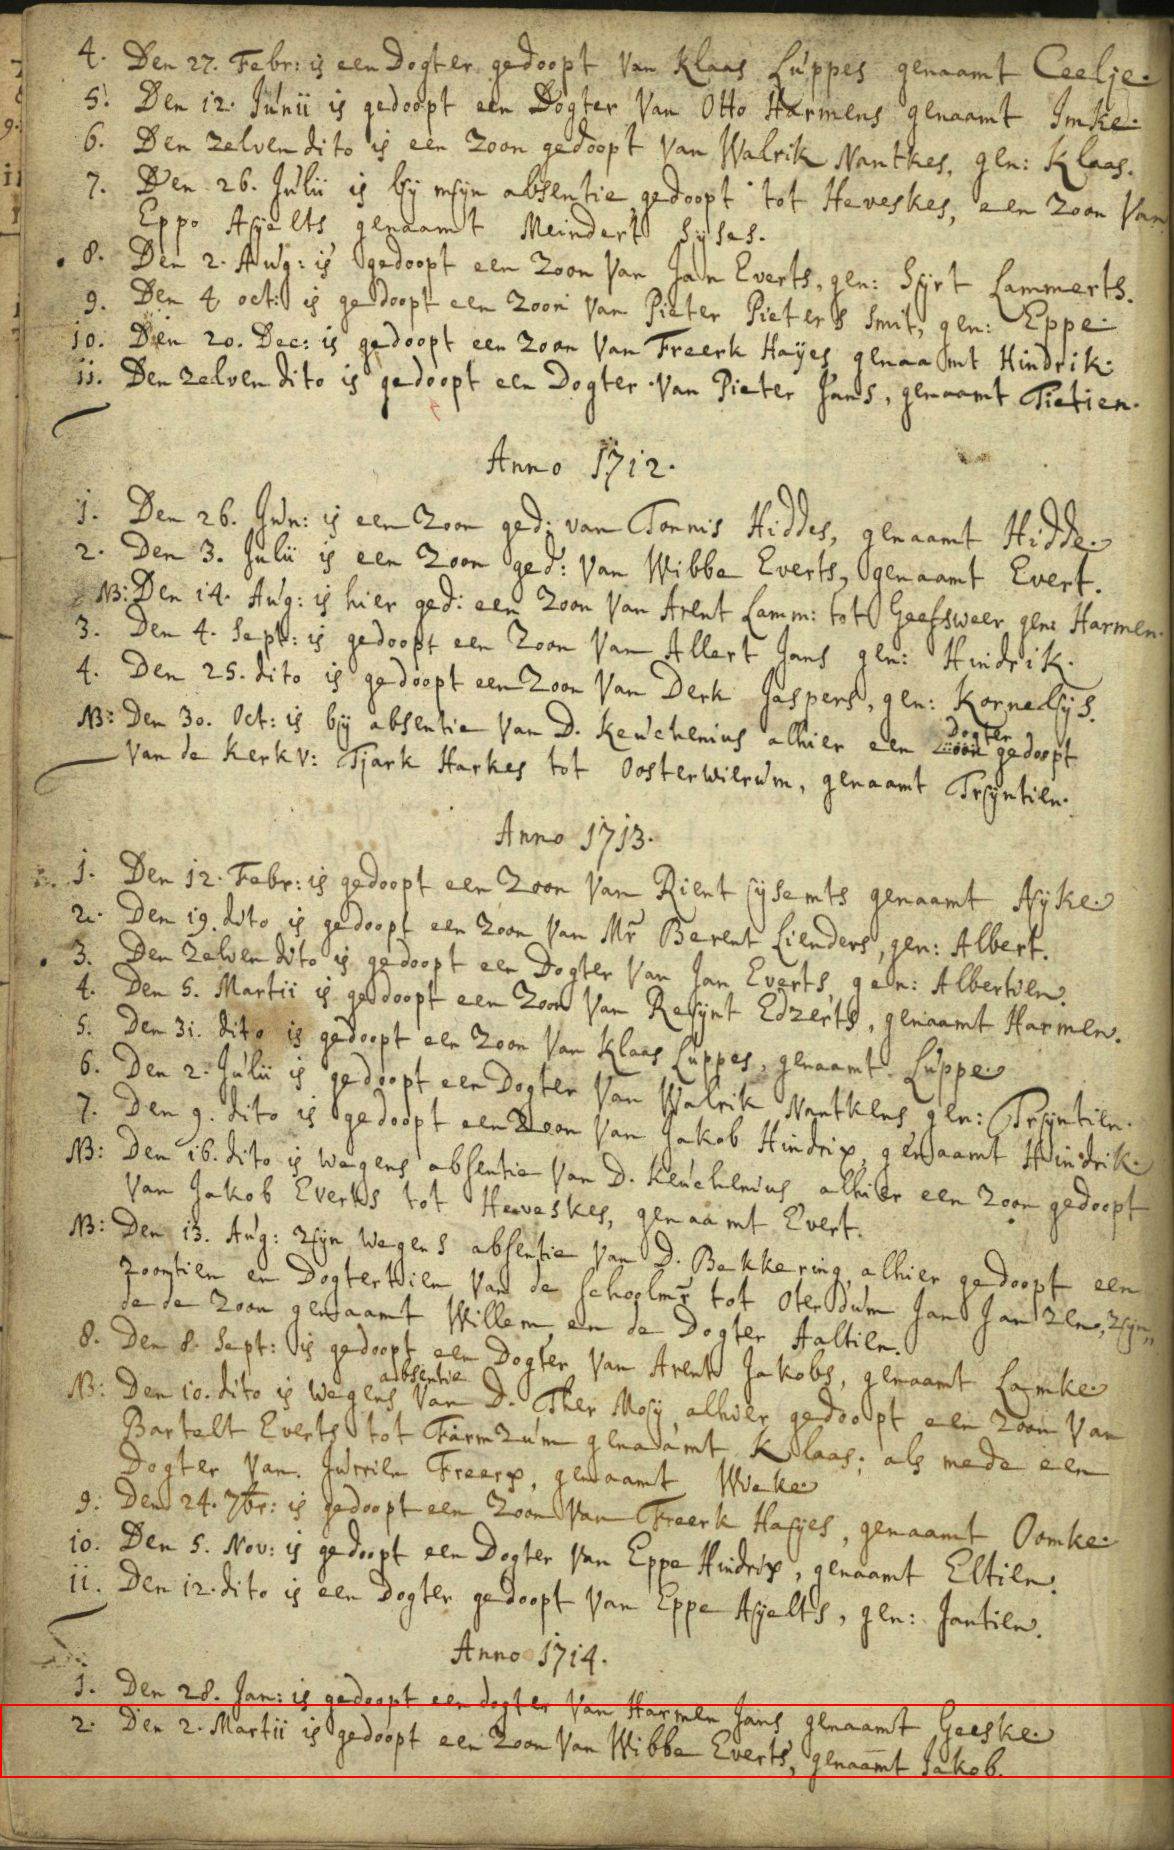 4. Den 27. Febr: is een Dogter gedoopt van Klaas Luppes genaamt Ceelje.
5. Den 12. Junii is gedoopt een Dogter van Otto Harmens genaamt Imke.
6. Den zelven dito is een Zoon gedoopt van Walrik Nantkes, gen: Klaas.
7. Den 26. Julii is bij mijn absentie gedoopt tot Heveskes, een Zoon van
Eppo Ayelts genaamt Meindert Syses.
8. Den 2. Aug: is gedoopt een Zoon van Jan Everts, gen: Syrt Lammerts.
9. Den 4 oct: is gedoopt een Zoon van Pieter Pieters Smit, gen: Eppe.
10. Den 20. Dec: is gedoopt een Zoon van Freerk Hayes genaamt Hindrik.
11. Den zelven dito is gedoopt een Dogter van Pieter Jans, genaamt Tietien.
Anno 1712.
1. Den 26. Jun: is een Zoon ged: van Tonnis Hiddes, genaamt Hidde.
2. Den 3. Julii is een Zoon ged: van Wibbe Everts, genaamt Evert.
NB: Den 14. Aug: is hier ged: een Zoon van Arent Lamm: tot Geefsweer gen: Harmen.
3. Den 4. Sept: is gedoopt een Zoon van Allert Jans gen: Hindrik.
4. Den 25. dito is gedoopt een Zoon van Derk Jaspers, gen: Kornelijs.
NB: Den 30. Oct: is bij absentie van D. Keuchenius alhier een Dogter gedoopt
van de Kerkv: Tjark Harkes tot Oosterwierum, genaamt Trijntien.
Anno 1713.
1. Den 12. Febr: is gedoopt een Zoon van Rient Sysemts genaamt Ayke.
2. Den 19. dito is gedoopt een Zoon van Mr Berent Lienders, gen: Albert.
3. Den zelven dito is gedoopt een Dogter van Jan Everts, gen: Albertien.
4. Den 5. Martii is gedoopt een Zoon van Reijnt Edzerts, genaamt Harmen.
5. Den 31. dito is gedoopt een Zoon van Klaas Luppes, genaamt Luppe.
6. Den 2. Julii is gedoopt een Dogter van Walrik Nantkens gen: Trijntien.
7. Den 9. dito is gedoopt een Zoon van Jakob Hindrix, genaamt Hindrik.
NB: Den 16. dito is wegens absentie van D. Keuchenius, alhier een Zoon gedoopt
van Jakob Everts tot Heveskes, genaamt Evert.
NB: Den 13. Aug: zijn wegens absentie van D. Bekkering, alhier gedoopt een
Zoontien en Dogtertien van de Schoolmr tot Oterdum Jan Janzen, zijn,,
de de Zoon genaamt Willem, en de Dogter Aaltien.
8. Den 8. Sept: is gedoopt een Dogter van Arent Jakobs, genaamt Lamke.
NB: Den 10. dito is wegens absentie van D. Ther Moy, alhier gedoopt een Zoon van
Bartelt Everts tot Farmzum genaamt Klaas; als mede een
Dogter van Jurrien Freerx, genaamt Wieke.
9. Den 24. 7br: is gedoopt een Zoon van Freerk Hayes, genaamt Oomke.
10. Den 5. Nov: is gedoopt een Dogter van Eppe Hindrix, genaamt Eltien.
11. Den 12. dito is een Dogter gedoopt van Eppe Ayelts, gen: Jantien.
Anno 1714.
1. Den 28. Jan: is gedoopt een dogter van Harmen Jans genaamt Geeske.
2. Den 2. Martii is gedoopt een Zoon van Wibbe Everts, genaamt Jakob.